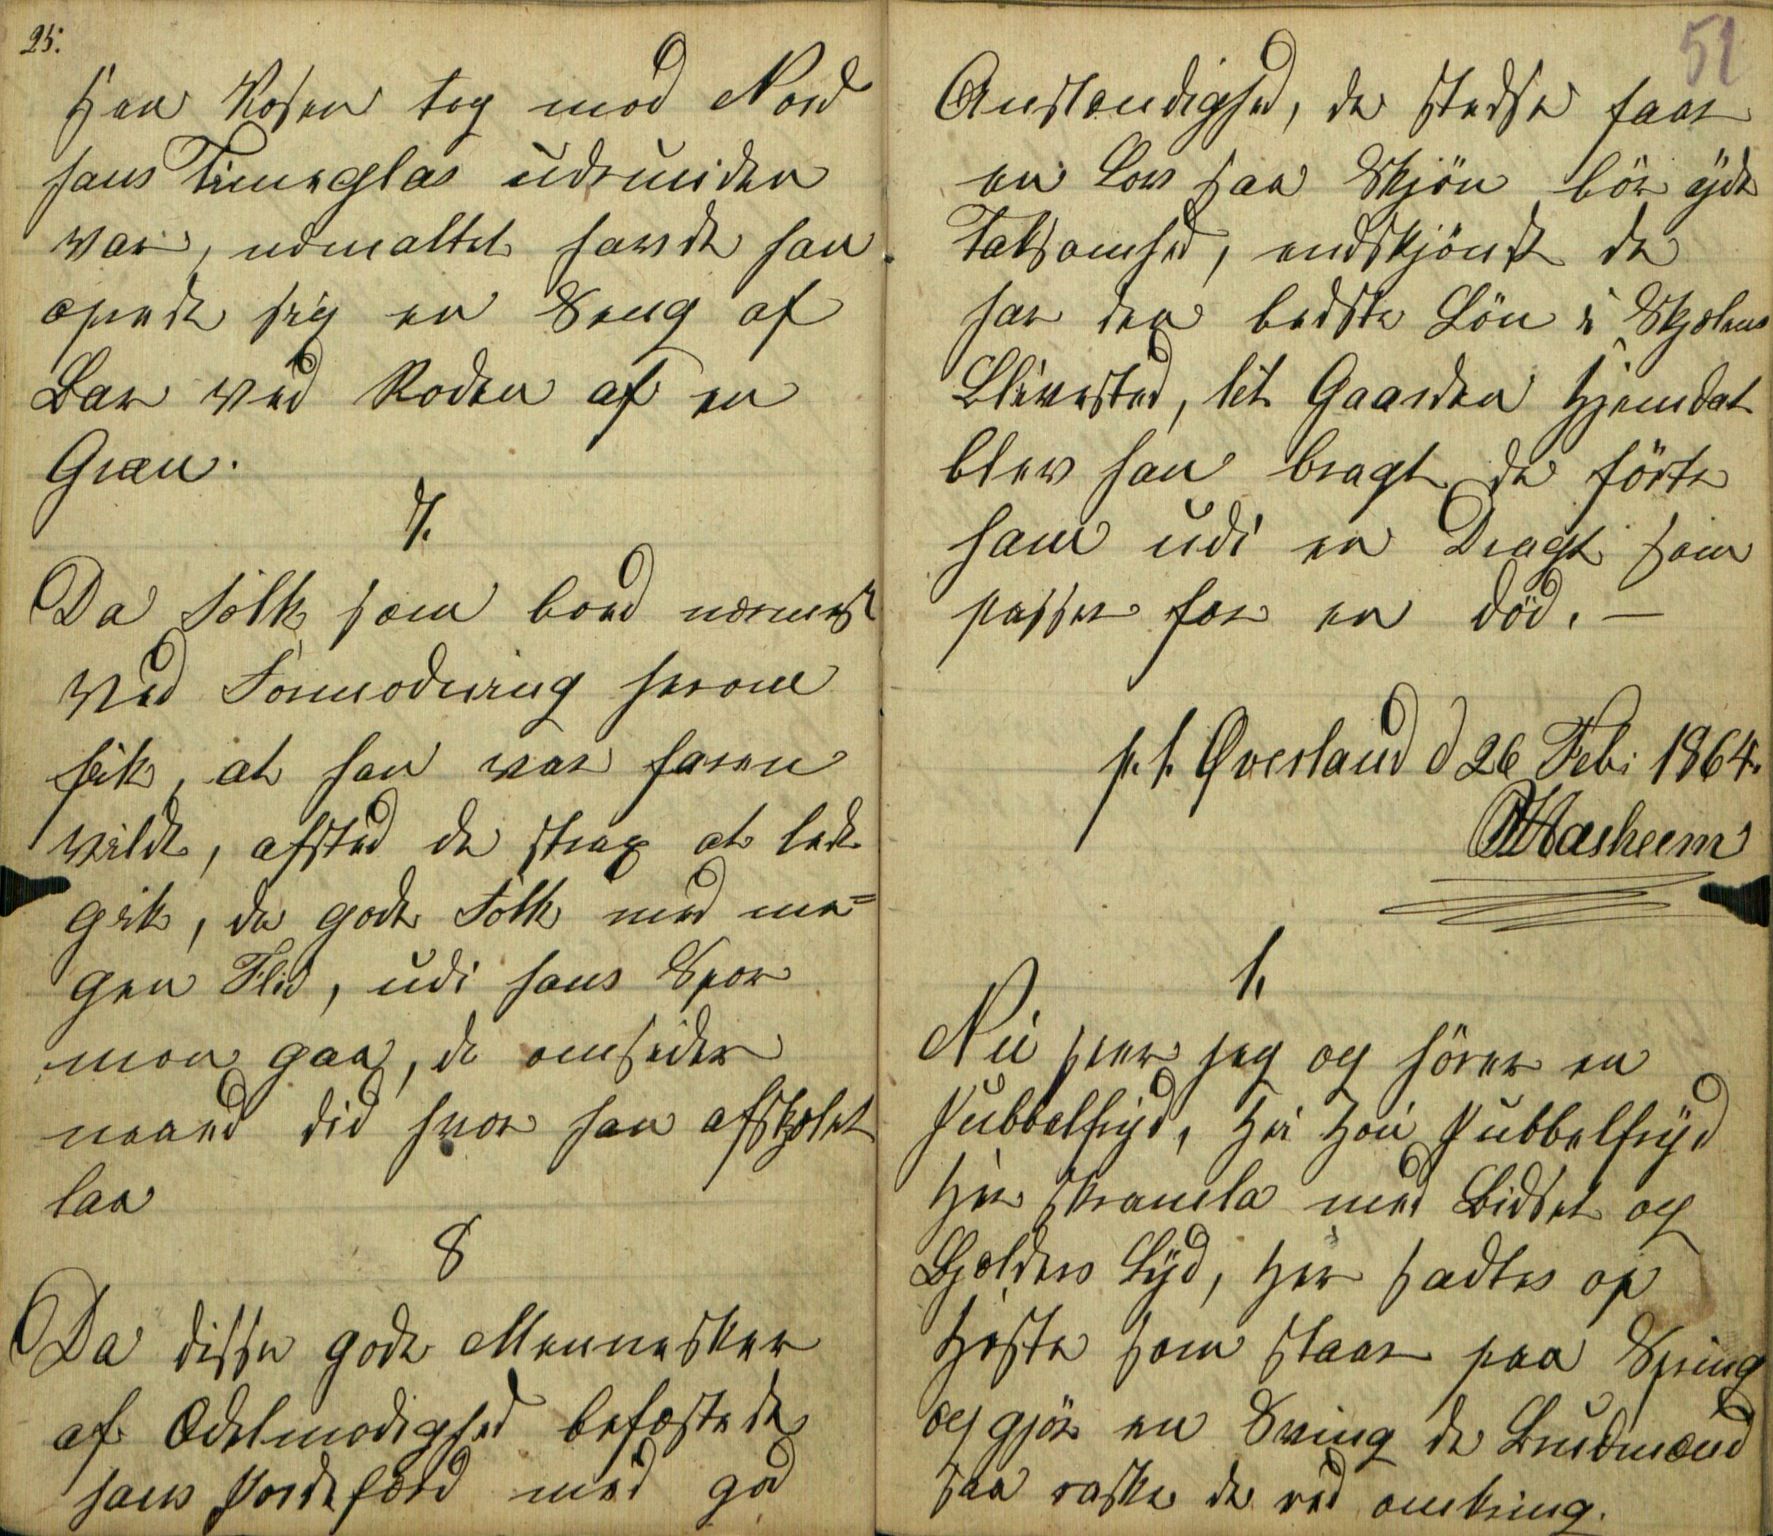 25.
Han Kosen tog mod Nord
hans Timeglas udrunden
var, udmattet havde han
opredt sig en Seng af
Bar ved Roden af en
Græn.
7.
Da Folk som boed nærmest
ved Formodning herom
fik, at han var faren
vildt, afsted de strax at lede
gik, de gode Folk med me=
gen Flid, udi hans Spor
mon gaa, de omsider
naaed did hvor han afskelet
laa
8
Da disse gode Mennesker
af Ædelmodighed befæstede
hans Jordeferd med god
51
Anstændighed, de stedse faar
en Lov saa Skjøn bør yde
Taksomhed, endskjønt de
har den bedste Løn i Skjolens
Blivested, til Gaarden Hjemdat
blev han bragt de førte
ham udi en Dragt som
passer for en død. —
p. t. Øverland d 26 Feb: 1864.
Aasheim
1.
Nu seer jeg og hører en
Jubbelfryd, Hei Hou Jubbelfryd
Her skramla med Bidsel og
Bjelders Lyd, Her sadles op
Heste som staar paa Spring
og gjør en Sving de Brudmænd
saa raske de red omkring.